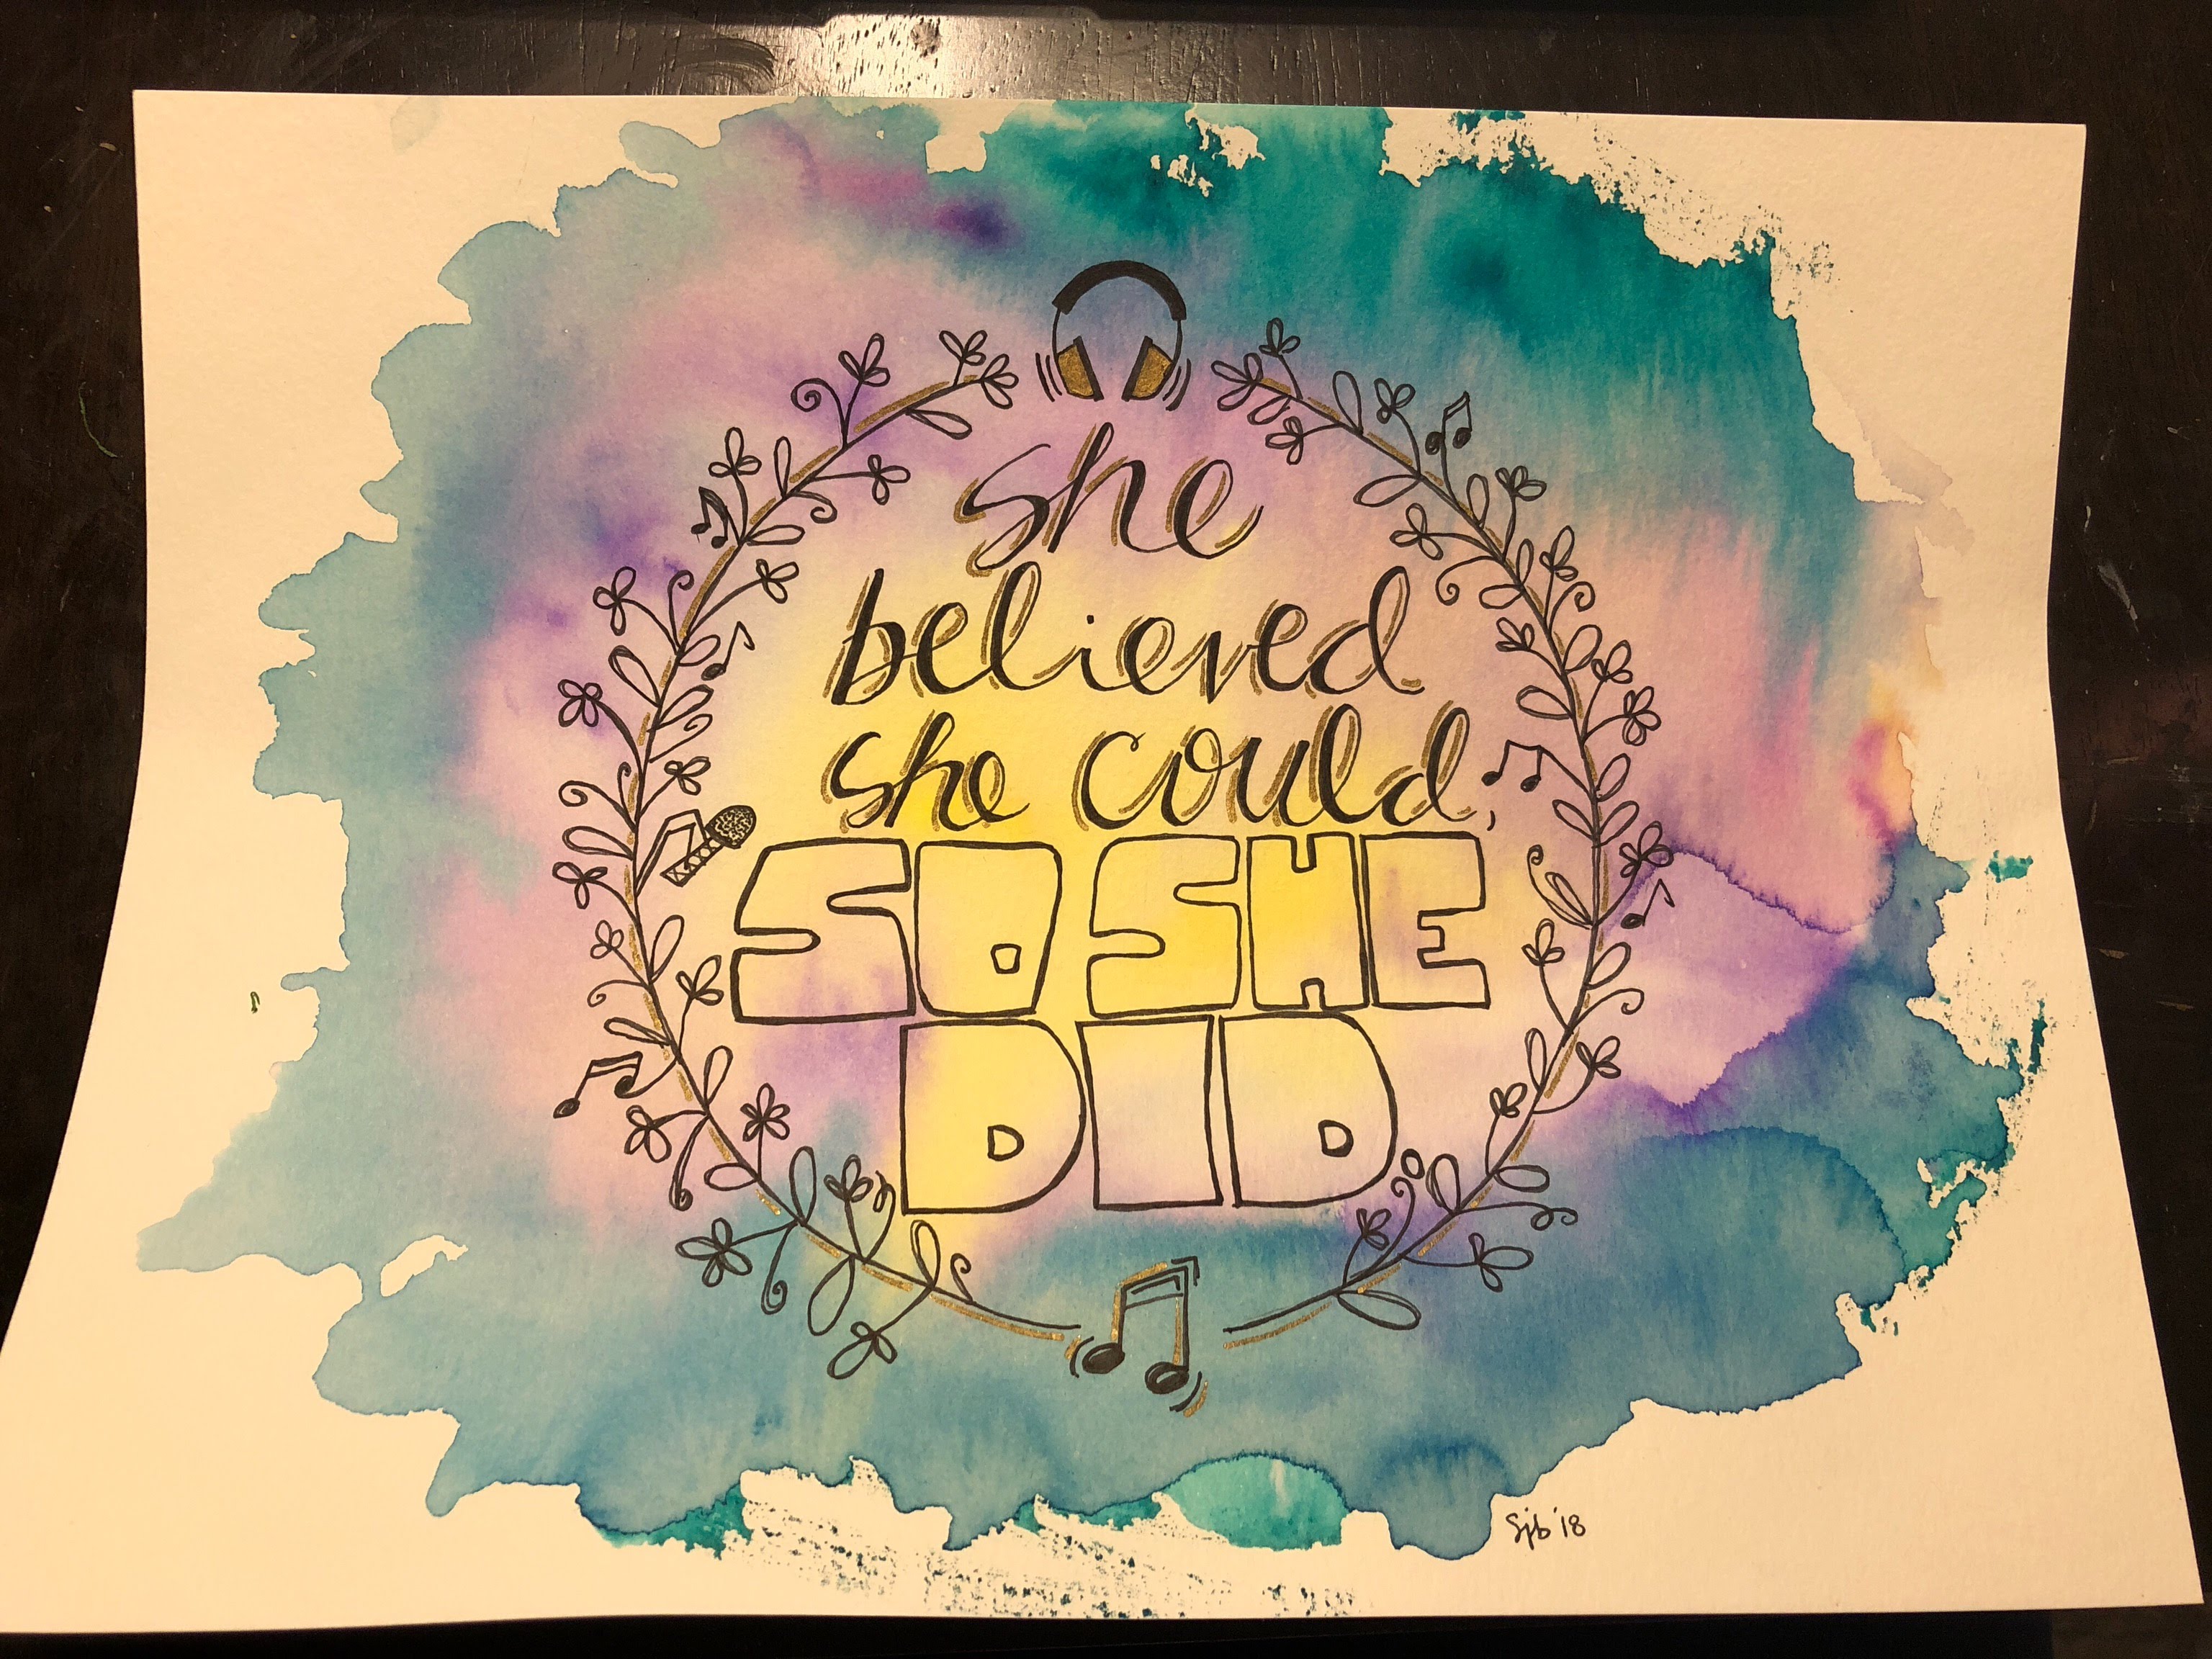 she
believed
she could,
SO SHE
DID
Sjb '18